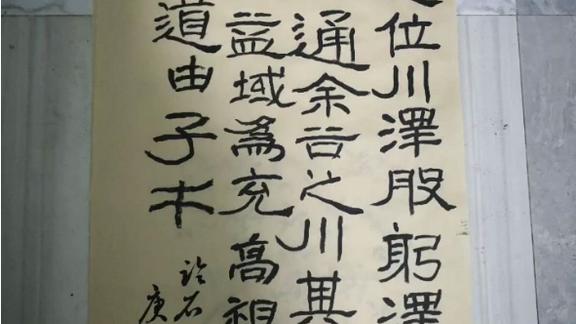 位川澤股躬澤
通余谷之川其
益域爲充高祖
道由子午
石
庚